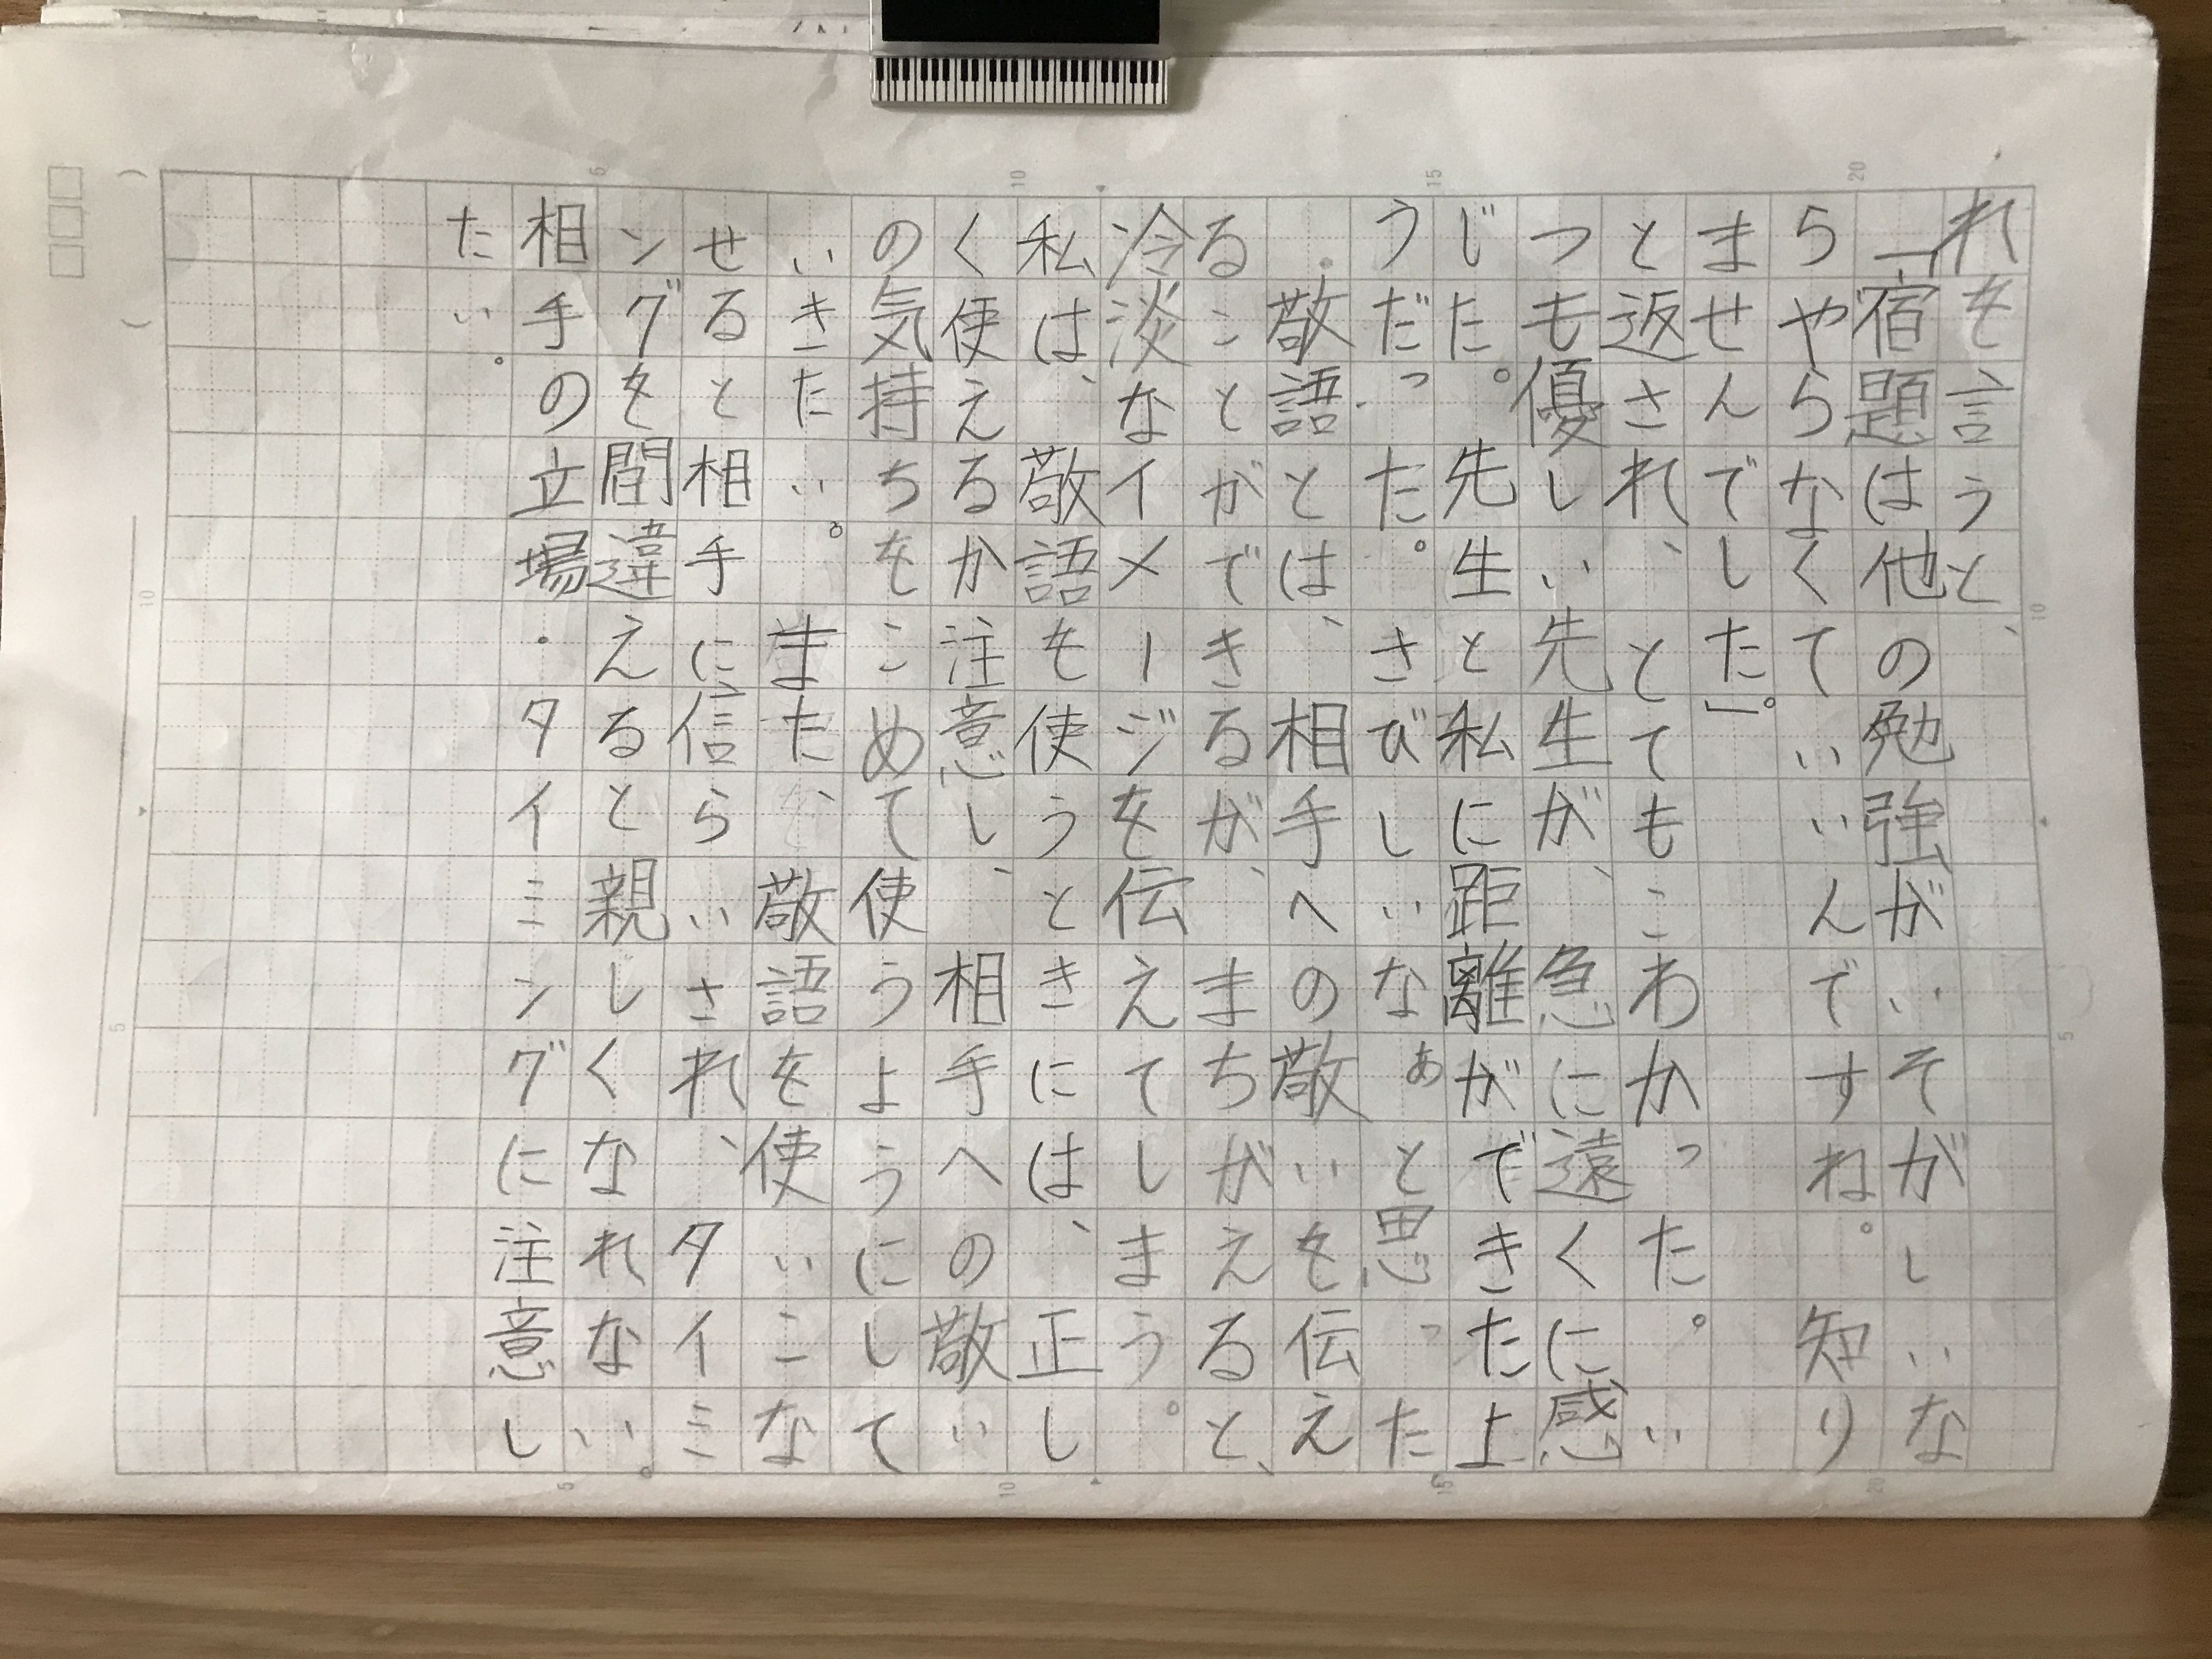 れを言うと、
「宿題は他の勉強がいそがしいな
らやらなくていいんですね。知り
ませんでした。」
と返され、とてもこわかった。い
つも優しい先生が、急に遠くに感
じた。先生と私に距離ができたよ
うだった。さびしいなぁと思った
敬語とは、相手への敬いを伝え
ることができるが、まちがえると、
冷淡なイメージを伝えてしまう。
私は、敬語も使うときには、正し
く使えるか注意し、相手への敬い
の気持ちをこめて使うようにして
いきたい。また、敬語を使いこな
せると相手に信らいされ、タイミ
ングを間違えると親しくなれない。
相手の立場・タイミングに注意し
たい。